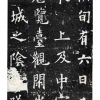 旬有六日
上及中
覽臺觀閑
城之陰